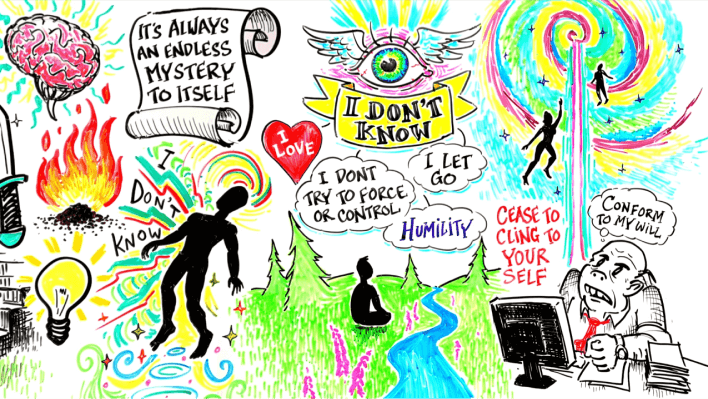 IT'S ALWAYS
AN ENDLESS
MYSTERY
TO ITSELF
I DON'T
KNOW
I
LOVE
I DONT
TRY TO FORCE
OR CONTROL
I LET
GO
HUMILITY
I
DON'T
KNOW
CEASE TO
CLING TO
YOUR
SELF
CONFORM
TO MY WILL